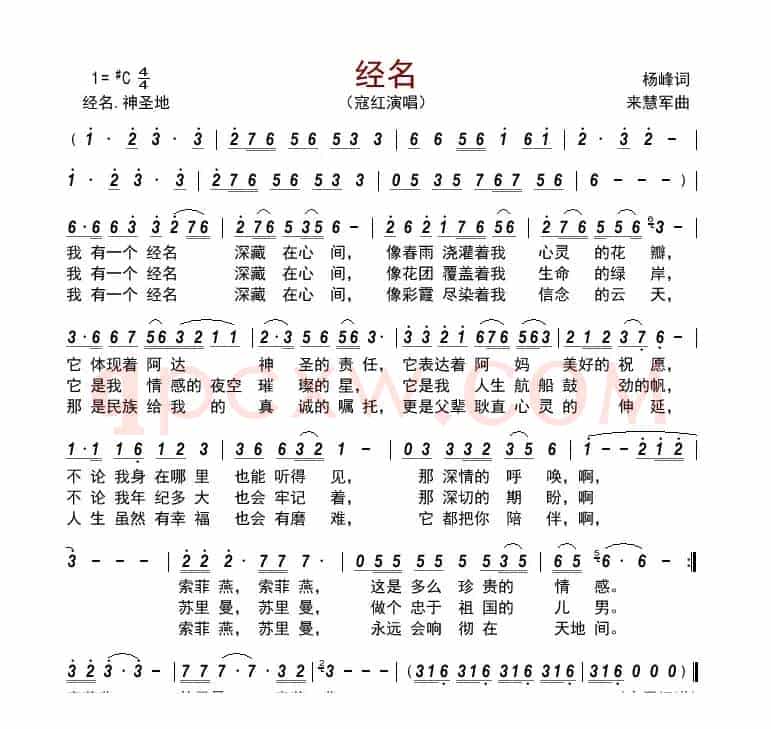 经名
1=♯C 4/4
杨峰词
经名.神圣地
（寇红演唱）
来慧军曲
(1· 2 3· 3 | 2 7 6 5 6 5 3 3 | 6 6 5 6 1 6 1 | 2· 3 2 - |
1· 2 3· 3 | 2 7 6 5 6 5 3 3 | 0 5 3 5 7 6 7 5 6 | 6 - - - )|
6·6 6 3 3 2 7 6 | 2 7 6 5 3 5 6 - | 2 6 2 1 7 6 5 6 | 2 7 6 5 5 6 3 - |
我 有一个 经名 深藏 在心 间， 像春雨 浇灌着我 心灵 的花 瓣，
我 有一个 经名 深藏 在心 间， 像花团 覆盖着我 生命 的绿 岸，
我 有一个 经名 深藏 在心 间， 像彩霞 尽染着我 信念 的云 天，
3·6 6 7 5 6 3 2 1 1 | 2·3 5 6 5 6 3· | 3 3 2 1 6 7 6 5 6 3 | 2 1 2 3 7 6 · |
它 体现着 阿达 神 圣的 责任， 它表达着 阿 妈 美好的 祝 愿，
它 是我 情感的 夜空 璀 璨的 星， 它是我 人生 航 船 鼓 劲的 帆，
那 是民族 给我 的 真 诚的 嘱托， 更是父辈 耿直 心灵 的 伸 延，
1·1 1 6 1 2 3 | 3 6 6 3 2 3 · | 0 3 3 3 2 3 5 6 | 1 - - 2 1 2 |
不 论 我身 在哪 里 也能 听得 见， 那 深情的 呼 唤，啊，
不 论 我年 纪多 大 也会 牢记 着， 那 深切的 期 盼，啊
人 生 虽然 有幸 福 也会 有磨 难， 它 都把你 陪 伴，啊，
3 - - - | 2 2 2· 7 7 7 · | 0 5 5 5 5 5 5 3 5 | 6 5 6· 6 - :‖
索菲 燕，索菲 燕， 这是 多么 珍 贵的 情 感。
苏里 曼，苏里 曼， 做个 忠于 祖 国的 儿 男。
索菲 燕，苏里 曼， 永远 会响 彻在 天地 间。
3 2 3· 3 - | 7 7 7· 7 3 2 | 3 - - - | (3 1 6 3 1 6 3 1 6 3 1 6 | 3 1 6 0 0 0) |